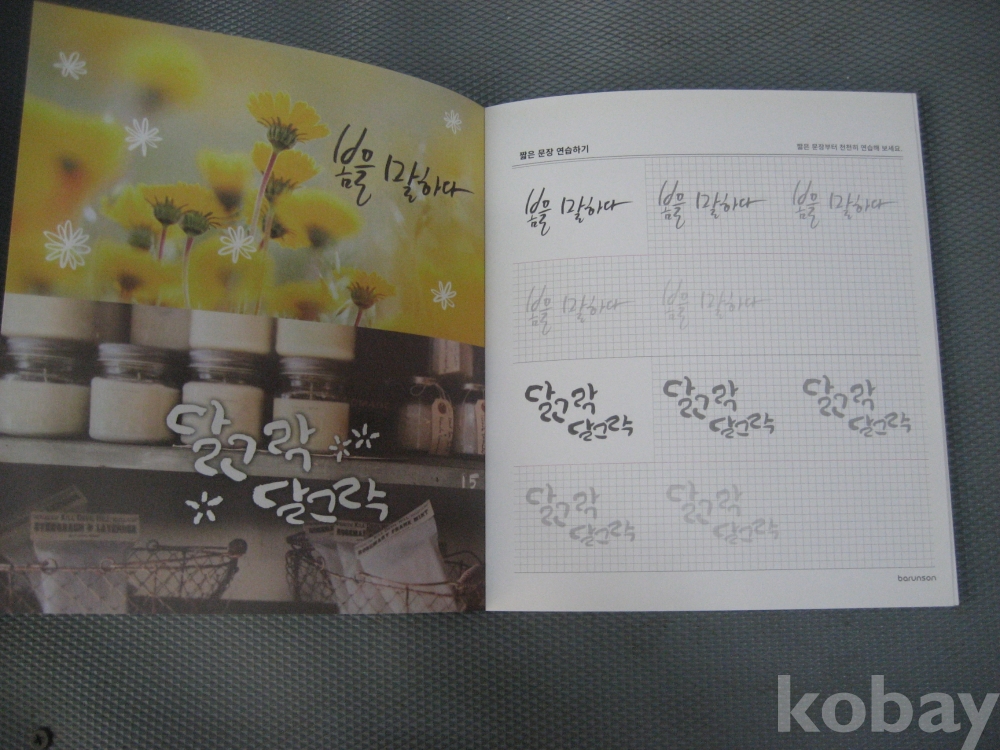 봄을 말하다
달그락
달그락
15
짧은 문장 연습하기
짧은 문장부터 천천히 연습해 보세요.
봄을 말하다 봄을 말하다 봄을 말하다
봄을 말하다 봄을 말하다
달그락 달그락 달그락
달그락 달그락 달그락
달그락 달그락
달그락 달그락
barunson
kobay